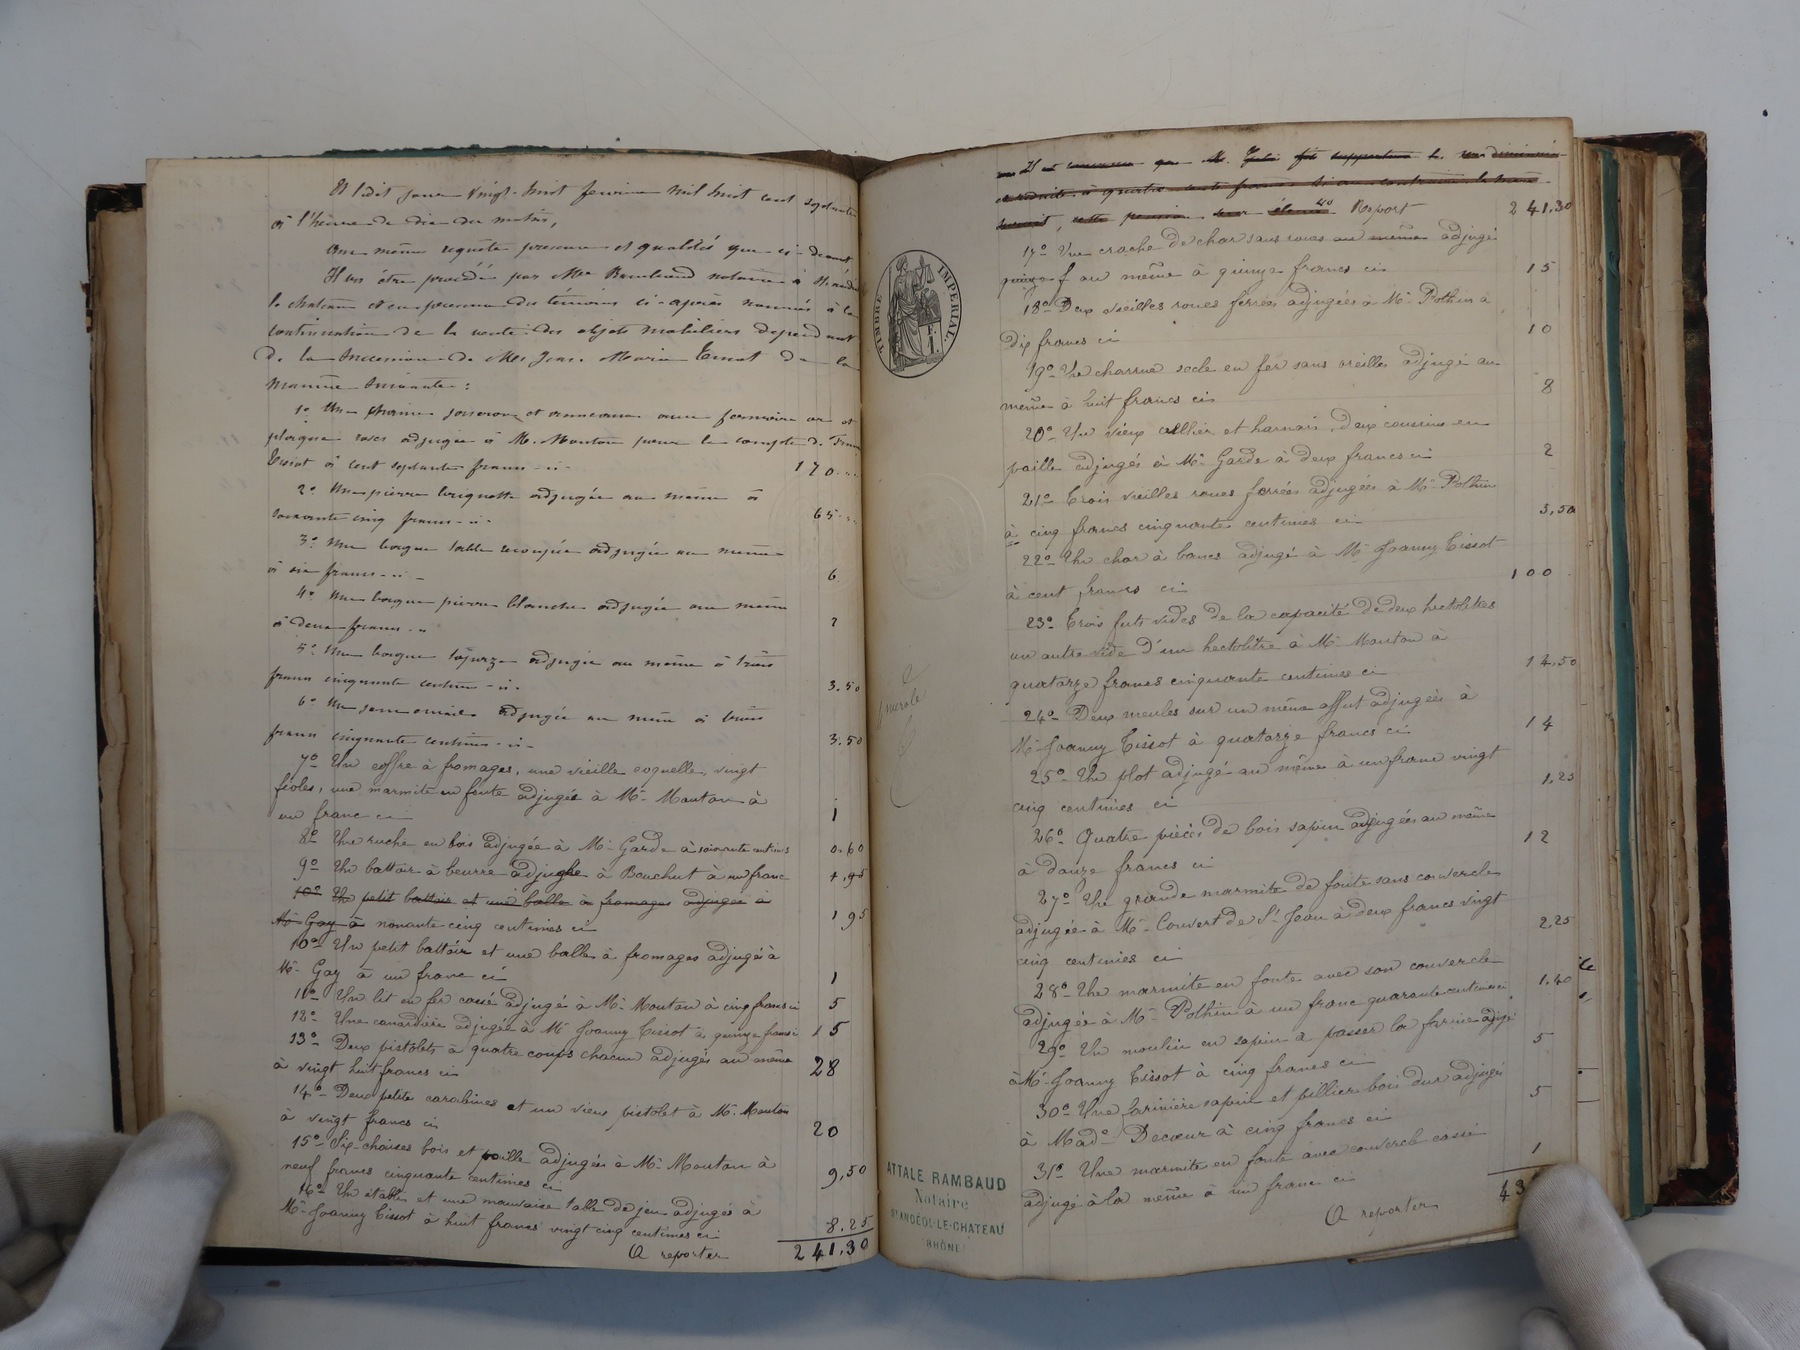 Et ledit jour vingt-huit février mil huit cent septante
à l'heure de dix du matin,
Aux mêmes requête présence et qualités que ci-devant
Il va être procédé par Mtre Rambaud notaire à St Andéol
le chateau et en présence des témoins ci-après nommés à la
continuation de la vente des objets mobiliers dépendant
de la succession de Mr Jean Marie Tissot de la
manière suivante :
1º Une chaine et anneaux avec or et
plaque adjugée à M. Mouton pour le compte de
Tissot à cent septante francs ci 170
2º Une pierre briquette adjugée au même à
soixante cinq francs ci 65
3º Une bague taille adjugée au même
à six francs ci 6
4º Une bague pierre blanche adjugée au même
à deux francs ci 2
5º Une bague topaze adjugée au même à trois
francs cinquante centimes ci 3.50
6º Une adjugée au même à trois
francs cinquante centimes ci 3.50
7º Un coffre à fromages, une vieille coquelle, vingt
fioles, une marmite en fonte adjugés à Mr Mouton à
un franc ci 1
8º Une ruche en bois adjugée à Mr Garde à soixante centimes 0.60
9º Un battoir à beurre adjugée à Bouchut à un franc 1,95
10º Un petit battoir et une balle à fromages adjugés à
Mr Gay à nonante cinq centimes ci 1 95
10º Un petit battoir et une balle à fromages adjugé à
Mr Gay à un franc ci 1
11º Un lit en fer cassé adjugé à Mr Mouton à cinq francs ci 5
12º Une canardière adjugée à Mr Joanny Tissot à quinze francs 15
13º Deux pistolets à quatre coups chacun adjugés au même
à vingt huit francs ci 28
14º Deux petites carabines et un vieux pistolet à Mr Mouton
à vingt francs ci 20
15º Six chaises bois et paille adjugées à Mr Mouton à
neuf francs cinquante centimes ci 9,50
16º Un établi et une mauvaise table de jeu adjugés à
Mr Joanny Tissot à huit francs vingt cinq centimes ci 8.25
A reporter 241,30
Report 241.30
17º Une crache de char sans roues au même adjugé
au même à quinze francs ci 15
18º Deux vieilles roues ferrées adjugées à Mr Pothin à
dix francs ci 10
19º Une charrue socle en fer sans oreilles adjugé au
même à huit francs ci 8
20º Un vieux collier et harnais, deux coussins en
paille adjugés à Mr Garde à deux francs ci 2
21º Trois vieilles roues ferrées adjugées à Mr Pothin
à cinq francs cinquante centimes ci 5,50
22º Un char à bancs adjugé à Mr Joanny Tissot
à cent francs ci 100
23º Trois futs vides de la capacité de deux hectolitres
un autre vide d'un hectolitre à Mr Mouton à
quatorze francs cinquante centimes ci 14,50
24º Deux meules sur un même affut adjugées à
Mr Joanny Tissot à quatorze francs ci 14
25º Un plot adjugé au même à un franc vingt
cinq centimes ci 1,25
26º Quatre pièces de bois sapin adjugées au même
à douze francs ci 12
27º Une grande marmite de fonte sans couvercle
adjugée à Mr Couvert de St Jean à deux francs vingt
cinq centimes ci 2,25
28º Une marmite en fonte avec son couvercle
adjugée à Mr Pothin à un franc quarante centimes ci 1.40
29º Un moulin en sapin à passer la farine adjugé
à Mr Joanny Tissot à cinq francs ci 5
30º Une farinière sapin et pillier bois dur adjugés
à Made Decœur à cinq francs ci 5
31º Une marmite en fonte avec couvercle cassé
adjugé à la même à un franc ci 1
A reporter 43
TIMBRE IMPERIAL.
ATTALE RAMBAUD
Notaire
ST ANDÉOL-LE-CHATEAU
(RHÔNE)